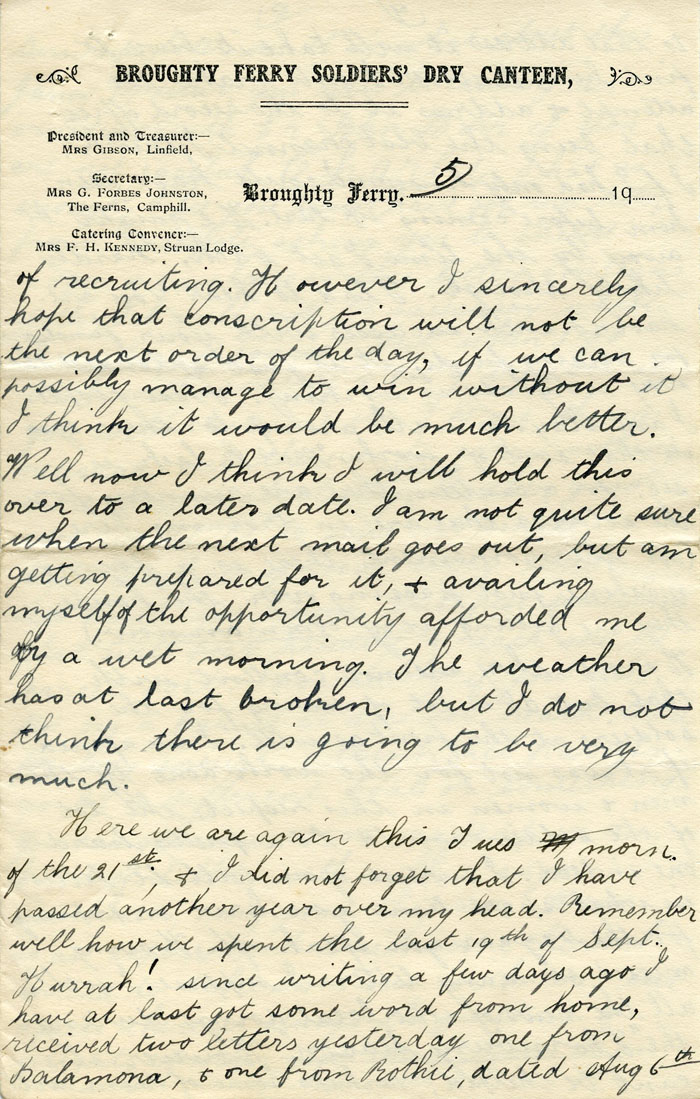 BROUGHTY FERRY SOLDIERS' DRY CANTEEN,
President and Treasurer:—
MRS GIBSON, Linfield,
Secretary:—
MRS G. FORBES JOHNSTON,
The Ferns, Camphill.
Catering Convener:—
MRS F. H. KENNEDY, Struan Lodge.
Broughty Ferry. 5 19
of recruiting. However I sincerely
hope that conscription will not be
the next order of the day, if we can
possibly manage to win without it
I think it would be much better.
Well now I think I will hold this
over to a later date. I am not quite sure
when the next mail goes out, but am
getting prepared for it, & availing
myself of the opportunity afforded me
by a wet morning. The weather
has at last broken, but I do not
think there is going to be very
much.
Here we are again this Tues morn.
of the 21st, & I did not forget that I have
passed another year over my head. Remember
well how we spent the last 19th of Sept.
Hurrah! since writing a few days ago I
have at last got some word from home,
received two letters yesterday one from
Balamona, & one from Rothie, dated Aug 6th